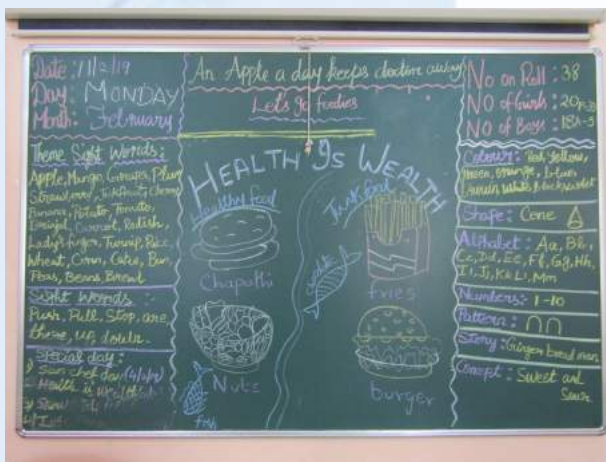 Date: 11/2/19
Day: MONDAY
Month: February
Theme Sight Words:
Apple, Mango, Grapes, Plum
Strawberry, Jackfruit, Cherry
Banana, Potato, Tomato,
Brinjal, Carrot, Radish,
Lady's finger, Turnip, Rice,
Wheat, Corn, Cake, Bun,
Peas, Beans, Bread
Sight Words :-
Push, Pull, Stop, are
those, up, down.
Special day:
chef day
Health is
Show
An Apple a day keeps doctor away
Let's go foodies
HEALTH Is WEALTH
Healthy food
Chapathi
Nuts
fish
Junk food
fries
burger
No on Roll : 38
No of Girls : 20
No of Boys : 18A-5
Colour: Red, Yellow,
Green, orange, blue
white, black
Shape: Cone
Alphabet: Aa, Bb,
Cc, Dd, Ee, Ff, Gg, Hh,
Ii, Jj, Kk Ll, Mm
Numbers:- 1-10
Pattern:
Story: Ginger bread man
Concept: Sweet and
Sour